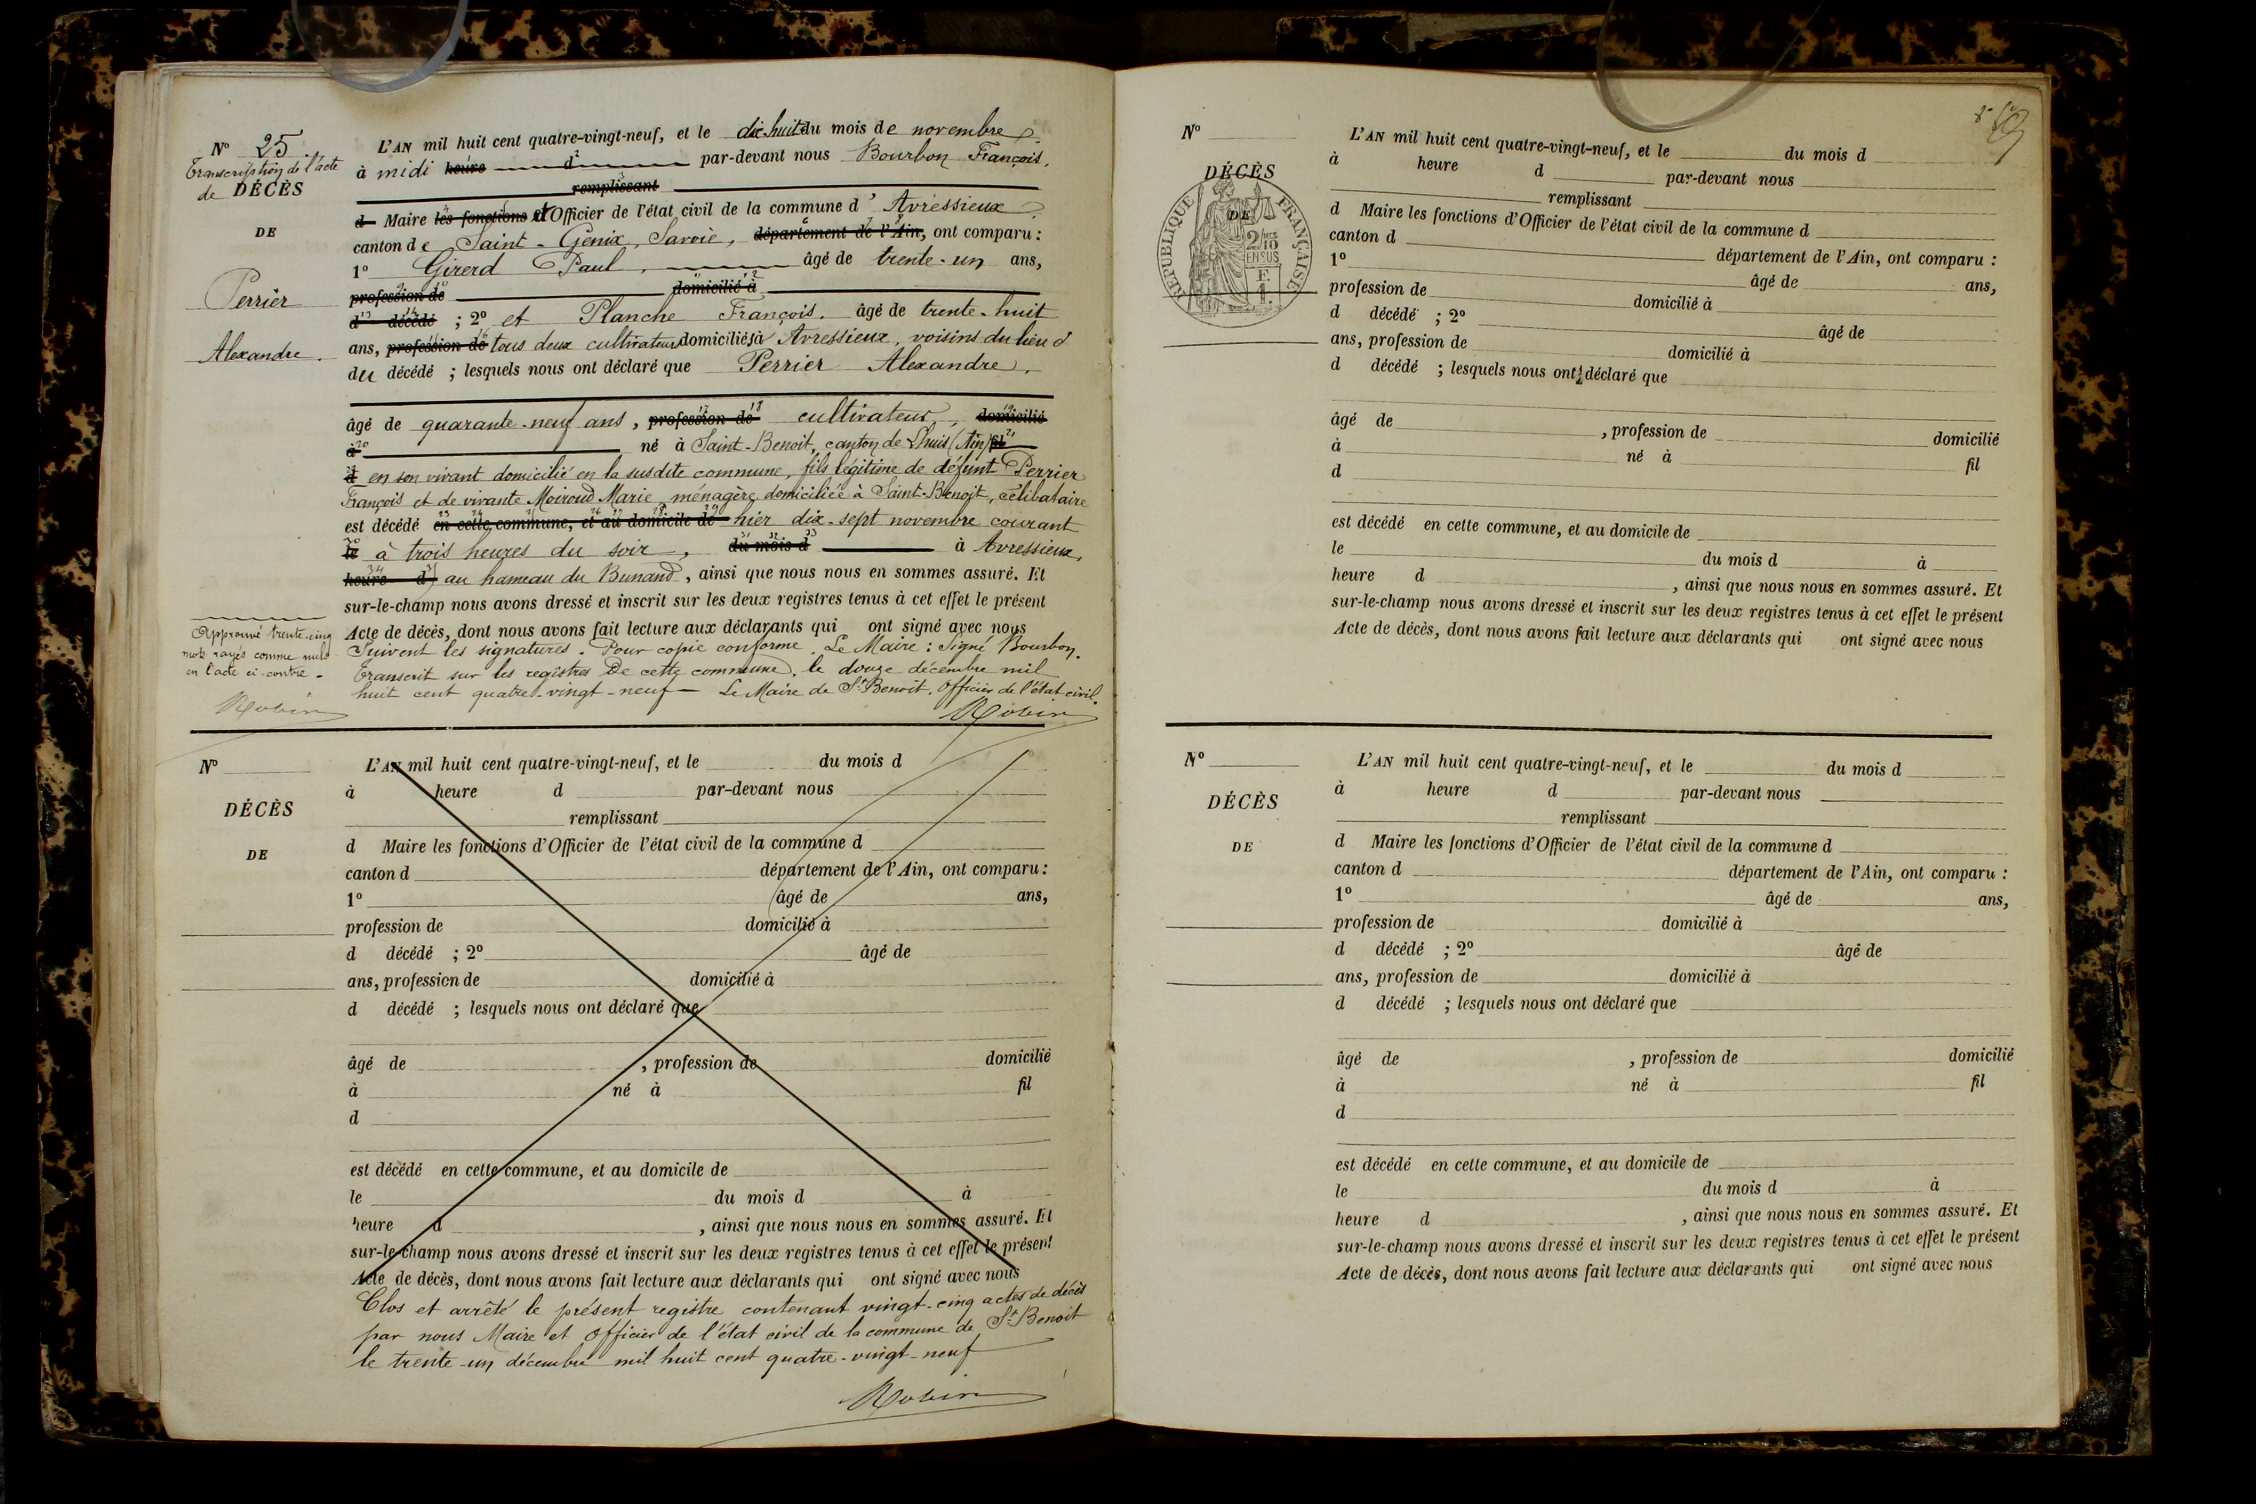 N° 25
Transcription de l'acte
de DÉCÈS
DE
Perrier
Alexandre.
L'AN mil huit cent quatre-vingt-neuf, et le dix-huit du mois de novembre
à midi heure d par-devant nous Bourbon François,
remplissant
d Maire les fonctions d'Officier de l'état civil de la commune d'Avressieux
canton de Saint-Genix, Savoie, département de l'Ain, ont comparu :
1° Girerd Paul, âgé de trente-un ans,
profession de domicilié à
d décédé ; 2° et Planche François. âgé de trente-huit
ans, profession de tous deux cultivateurs domiciliés à Avressieux, voisins du lieu d
du décédé ; lesquels nous ont déclaré que Perrier Alexandre,
âgé de quarante-neuf ans, profession de cultivateur, domicilié
à né à Saint-Benoit, canton de Lhuis (Ain) fil
d en son vivant domicilié en la susdite commune, fils légitime de défunt Perrier
François et de vivante Moiroud Marie, ménagère domiciliée à Saint-Benoit, célibataire
est décédé en cette commune, et au domicile de hier dix-sept novembre courant
le à trois heures du soir, du mois d à Avressieux,
heure d au hameau du Bunand, ainsi que nous nous en sommes assuré. Et
sur-le-champ nous avons dressé et inscrit sur les deux registres tenus à cet effet le présent
Acte de décès, dont nous avons fait lecture aux déclarants qui ont signé avec nous
Suivent les signatures. Pour copie conforme. Le Maire : Signé Bourbon.
Transcrit sur les registres de cette commune, le douze décembre mil
huit cent quatre-vingt-neuf — Le Maire de St Benoit, Officier de l'état civil.
Robin
Approuvé trente-cinq
mots rayés comme nuls
en l'acte ci-contre.
Robin
N°
DÉCÈS
DE
L'AN mil huit cent quatre-vingt-neuf, et le du mois d
à heure d par-devant nous
remplissant
d Maire les fonctions d'Officier de l'état civil de la commune d
canton d département de l'Ain, ont comparu :
1° âgé de ans,
profession de domicilié à
d décédé ; 2° âgé de
ans, profession de domicilié à
d décédé ; lesquels nous ont déclaré que
âgé de , profession de domicilié
à né à fil
d
est décédé en cette commune, et au domicile de
le du mois d à
heure d , ainsi que nous nous en sommes assuré. Et
sur-le-champ nous avons dressé et inscrit sur les deux registres tenus à cet effet le présent
Acte de décès, dont nous avons fait lecture aux déclarants qui ont signé avec nous
Clos et arrêté le présent registre contenant vingt-cinq actes de décès
par nous Maire et Officier de l'état civil de la commune de St Benoit
le trente-un décembre mil huit cent quatre-vingt-neuf
Robin
N°
DÉCÈS
DE
RÉPUBLIQUE FRANÇAISE
2/10 EN SUS
L'AN mil huit cent quatre-vingt-neuf, et le du mois d
à heure d par-devant nous
remplissant
d Maire les fonctions d'Officier de l'état civil de la commune d
canton d
département de l'Ain, ont comparu :
1° âgé de ans,
profession de domicilié à
d décédé ; 2° âgé de
ans, profession de domicilié à
d décédé ; lesquels nous ont déclaré que
âgé de , profession de domicilié
à né à fil
d
est décédé en cette commune, et au domicile de
le du mois d à
heure d , ainsi que nous nous en sommes assuré. Et
sur-le-champ nous avons dressé et inscrit sur les deux registres tenus à cet effet le présent
Acte de décès, dont nous avons fait lecture aux déclarants qui ont signé avec nous
N°
DÉCÈS
DE
L'AN mil huit cent quatre-vingt-neuf, et le du mois d
à heure d par-devant nous
remplissant
d Maire les fonctions d'Officier de l'état civil de la commune d
canton d département de l'Ain, ont comparu :
1° âgé de ans,
profession de domicilié à
d décédé ; 2° âgé de
ans, profession de domicilié à
d décédé ; lesquels nous ont déclaré que
âgé de , profession de domicilié
à né à fil
d
est décédé en cette commune, et au domicile de
le du mois d à
heure d , ainsi que nous nous en sommes assuré. Et
sur-le-champ nous avons dressé et inscrit sur les deux registres tenus à cet effet le présent
Acte de décès, dont nous avons fait lecture aux déclarants qui ont signé avec nous